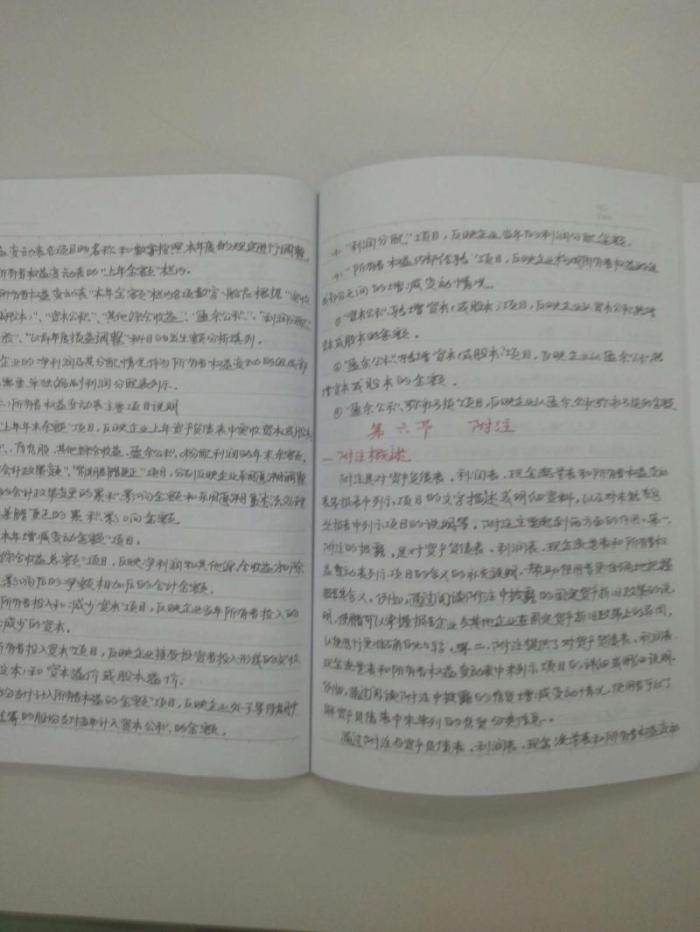 益变动表各项目的名称和数字按照本年度的规定进行调整
所有者权益变动表的“上年金额”栏内。
所有者权益变动表“本年金额”栏内各项数字一般应根据“实收
股本)”、“资本公积”、“其他综合收益”、“盈余公积”、“利润分配”
“以前年度损益调整”科目的发生额分析填列。
企业的净利润及其分配情况作为所有者权益变动的组成部
需要单独编制利润分配表列示。
二)所有者权益变动表主要项目说明
“上年年末余额”项目,反映企业上年资产负债表中实收资本(或股本
、库存股、其他综合收益、盈余公积、未分配利润的年末余额。
“会计政策变更”、“前期差错更正”项目,分别反映企业采用追溯调整
的会计政策变更的累积影响金额和采用追溯重述法处理
差错更正的累积影响金额。
本年增减变动金额”项目。
综合收益总额”项目,反映净利润和其他综合收益扣除
影响后的净额相加后的合计金额。
所有者投入和减少资本”项目,反映企业当年所有者投入的
减少的资本。
所有者投入资本”项目,反映企业接受投资者投入形成的实收
股本)和资本溢价或股本溢价。
股份支付计入所有者权益的金额”项目,反映企业处于等待期中
结算的股份支付当年计入资本公积的金额。
“利润分配”项目,反映企业当年的利润分配金额。
“所有者权益内部结转”项目,反映企业构成所有者权益的组
成部分之间的增减变动情况。
①“资本公积转增资本(或股本)”项目,反映企业以资本公积转增
资本或股本的金额。
②“盈余公积转增资本(或股本)”项目,反映企业以盈余公积转
增资本或股本的金额。
③“盈余公积弥补亏损”项目,反映企业以盈余公积弥补亏损的金额
第六节 附注
一、附注概述
附注是对资产负债表、利润表、现金流量表和所有者权益变动
表等报表中列示项目的文字描述或明细资料,以及对未能在这
些报表中列示项目的说明等。附注主要起到两方面的作用。第一,
附注的披露,是对资产负债表、利润表、现金流量表和所有者权
益变动表列示项目的含义的补充说明,帮助使用者更准确地把握
其含义。例如,通过阅读附注中披露的固定资产折旧政策的说
明,使用者可以掌握报告企业与其他企业在固定资产折旧政策上的异同,
以便进行更准确的比较。第二,附注提供了对资产负债表、利润表、
现金流量表和所有者权益变动表中未列示项目的详细或明细说明。
例如,通过阅读附注中披露的存货增减变动情况,使用者可以了
解资产负债表中未单列的存货分类信息。
通过附注与资产负债表、利润表、现金流量表和所有者权益变动